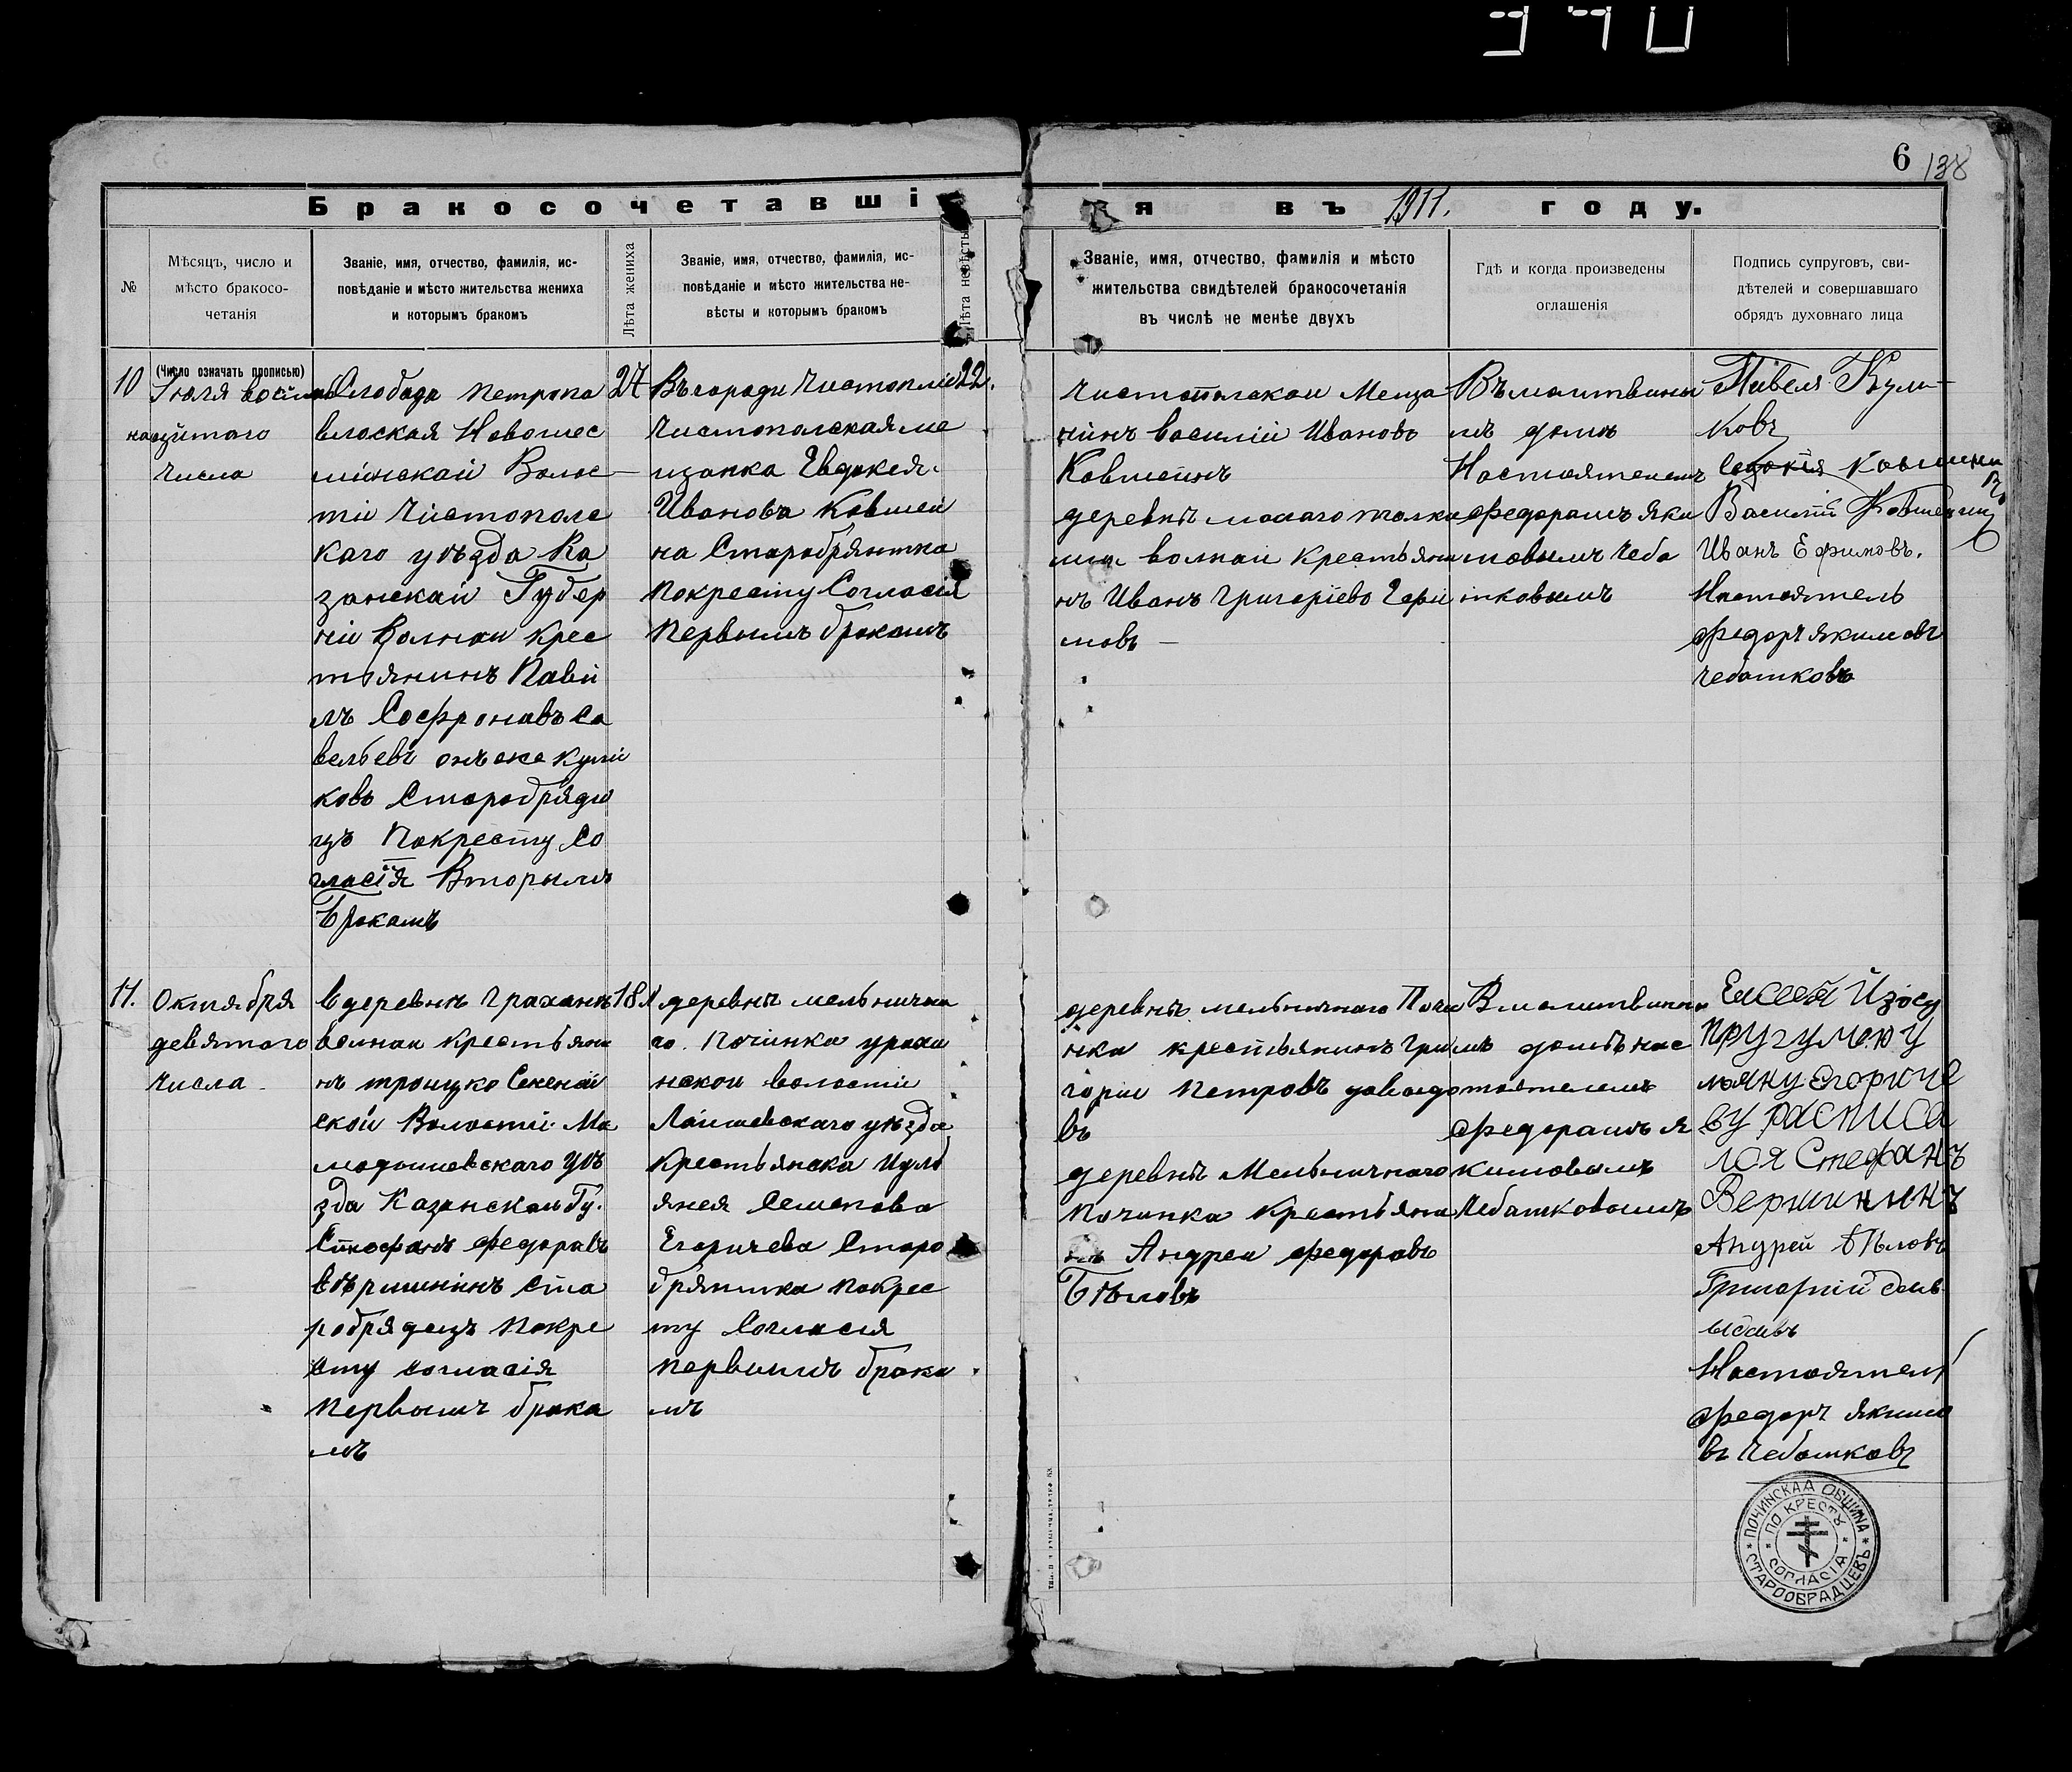 390
6 138
Бракосочетавшіся въ 1911. году.
№
Мѣсяцъ, число и
мѣсто бракосо-
четанія
Званіе, имя, отчество, фамилія, ис-
повѣданіе и мѣсто жительства жениха
и которымъ бракомъ
Лѣта жениха
Званіе, имя, отчество, фамилія, ис-
повѣданіе и мѣсто жительства не-
вѣсты и которымъ бракомъ
Лѣта невѣсты
Званіе, имя, отчество, фамилія и мѣсто
жительства свидѣтелей бракосочетанія
въ числѣ не менѣе двухъ
Гдѣ и когда произведены
оглашенія
Подпись супруговъ, сви-
дѣтелей и совершавшаго
обрядъ духовнаго лица
(Число означать прописью)
10
Іюля восьм
надцитаго
числа
Слобода Петропа
вловская Новошес
минскай Волос
тіи Чистополс
каго уѣзда Ка
занскай Губер
ніи Волнаи Крес
тьянинъ Пави
лъ Софронавъ Са
вельевъ онъ же Кули
ковъ Старобрядц
цъ Покресту Со
гласія Вторымъ
Бракамъ
27
Въ городи Чистополи
Чистополская ме
щанка Евдокея
Иванова Ковшеи
на Старобрянтка
Покресту Согласія
Первымъ бракамъ
22.
Чистополскаи Меща
нинъ Василіи Ивановъ
Ковшеинъ
деревнѣ малаго толки
ша волнаи Крестьяни
нъ Иванъ Григоріево Ефи
мовъ —
Въ молитвином
мъ домъ
Настоятелемъ
Федорамъ Яки
мовымъ Чеба
тковымъ
Павелъ Кули-
ковъ
Ковшеина
Василій Ковшеинъ
Иванъ Ефимовъ.
Настоятель
Федоръ Якимовъ
Чебатковъ
11.
Октября
девятаго
числа
Вдеревнѣ Грахань
волнаи Крестьяни
нъ троицко
ской Волости Ма
мадышевскаго Уѣ
зда Казанскаи Гу.
Стефанъ Федоравъ
Вѣршининъ Ста
робрядецъ Покре
сту согласія
Первымъ брака
мъ
18
деревнѣ мельнична
го Починка ураха
нскои волости
Лаишевскаго уѣзда
Крестьянска Иуль
янея Семенова
Егоричева Старо
брянтка Покрес
ту Согласія
Первымъ брака
мъ
деревнѣ мельничнаго Почи
нка крестьянинъ Гри
гории Петровъ давыдо
въ
деревнѣ Мельничнаго
Починка Крестьяни
нъ Андреи Федоровъ
Бѣловъ
Вмолитвином
мъ домѣ нас
тоятелемъ
Федорамъ Я
кимовымъ
Чебатковымъ
Елисей Изосу
ляну Егориче
ву расписа
лся Стефанъ
Вершининъ
Андрей Бѣловъ
Григорій
Настоятель
Федоръ Якимо
въ Чебатковъ
ПОЧИНСКАЯ ОБЩИНА
СТАРООБРАДЦЕВЪ
ПО КРЕСТУ
СОГЛАСІА